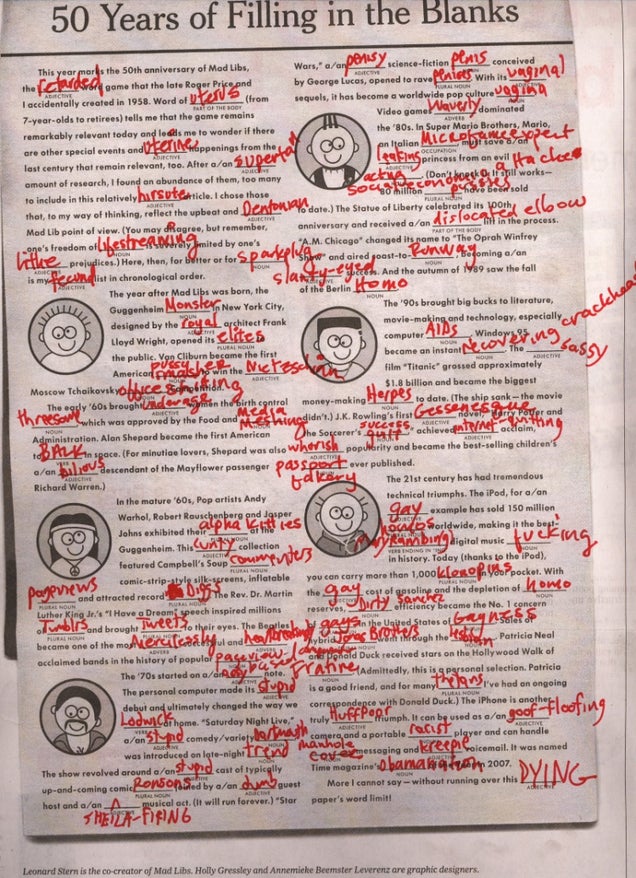 50 Years of Filling in the Blanks
This year marks the 50th anniversary of Mad Libs,
the retarded game that the late Roger Price and
ADJECTIVE
I accidentally created in 1958. Word of uterus (from
PART OF THE BODY
7-year-olds to retirees) tells me that the game remains
remarkably relevant today and leads me to wonder if there
are other special events and uterine happenings from the
ADJECTIVE
last century that remain relevant, too. After a/an superfat
ADJECTIVE
amount of research, I found an abundance of them, too many
to include in this relatively hirsute article. I chose those
ADJECTIVE
that, to my way of thinking, reflect the upbeat and Dentonian
ADJECTIVE
Mad Lib point of view. (You may disagree, but remember,
one's freedom of lifestreaming is severely limited by one's
NOUN
little prejudices.) Here, then, for better or for sparkplug
ADJECTIVE
NOUN
is my fecund list in chronological order.
ADJECTIVE
The year after Mad Libs was born, the
Guggenheim Monster in New York City,
NOUN
designed by the royal architect Frank
ADJECTIVE
Lloyd Wright, opened its elites to
PLURAL NOUN
the public. Van Cliburn became the first
American to win the Nietzschian
Moscow Tchaikovsky Competition.
The early '60s brought underage women the birth control
ADJECTIVE
threesome which was approved by the Food and Media Meshing
NOUN
Administration. Alan Shepard became the first American
to BALK in space. (For minutiae lovers, Shepard was also
a/an bilious descendant of the Mayflower passenger
ADJECTIVE
Richard Warren.)
In the mature '60s, Pop artists Andy
Warhol, Robert Rauschenberg and Jasper
Johns exhibited their alpha kitties at the
PLURAL NOUN
Guggenheim. This cunty collection
ADJECTIVE
featured Campbell's Soup commenters
comic-strip-style silk-screens, inflatable
pageviews and attracted record Diggs the Rev. Dr. Martin
PLURAL NOUN
Luther King Jr.'s "I Have a Dream" speech inspired millions
of Tumblrs and brought Tweets to their eyes. The Beatles
PLURAL NOUN
became one of the most Mercilessly successful and heartbreaking
ADVERB
ADJECTIVE
acclaimed bands in the history of popular
The '70s started on a/an note.
The personal computer made its stupid
ADJECTIVE
debut and ultimately changed the way we
Lodwick at home. "Saturday Night Live,"
VERB
a/an stupid comedy/variety
ADJECTIVE
was introduced on late-night trend
NOUN
The show revolved around a/an stupid cast of typically
ADJECTIVE
up-and-coming comic Ronsons joined by a/an dumb guest
PLURAL NOUN
ADJECTIVE
host and a/an SHEILA-FIRING musical act. (It will run forever.) "Star
ADJECTIVE
Wars," a/an penisy science-fiction penis conceived
ADJECTIVE
NOUN
by George Lucas, opened to rave penises. With its vaginal
PLURAL NOUN
ADJECTIVE
sequels, it has become a worldwide pop culture vagina
NOUN
Video games Waverly dominated
ADVERB
the '80s. In Super Mario Brothers, Mario,
an Italian Microfame expert must save a/an
OCCUPATION
leaking princess from an evil attachee
ADJECTIVE
(Don't knock it. It still works—
80 million have been sold
to date.) The Statue of Liberty celebrated its 100th
anniversary and received a/an dislocated elbow lift in the process.
PART OF THE BODY
"A.M. Chicago" changed its name to "The Oprah Winfrey
Show" and aired coast-to- Runway, becoming a/an
NOUN
slanty-eyed success. And the autumn of 1989 saw the fall
ADJECTIVE
of the Berlin Homo
NOUN
The '90s brought big bucks to literature,
movie-making and technology, especially
computer AIDS. Windows 95
became an instant recovering crackhead. The sassy
ADJECTIVE
film "Titanic" grossed approximately
$1.8 billion and became the biggest
money-making Herpes to date. (The ship sank—the movie
NOUN
didn't.) J.K. Rowling's first Gessenesque novel, "Harry Potter and
ADJECTIVE
the Sorcerer's achieved internet-quitting acclaim,
ADJECTIVE
whorish popularity and became the best-selling children's
ADJECTIVE
passport fakery ever published.
NOUN
The 21st century has had tremendous
technical triumphs. The iPod, for a/an
gay example has sold 150 million
ADJECTIVE
worldwide, making it the best-
digital music fucking
VERB ENDING IN "ING"
NOUN
in history. Today (thanks to the iPod),
you can carry more than 1,000 klonopins in your pocket. With
PLURAL NOUN
the gay cost of gasoline and the depletion of homo
ADJECTIVE
reserves, Dirty source efficiency became the No. 1 concern
of gays in the United States. Sales of Gayness
hybrid Jonas Brothers went through the lesbian. Patricia Neal
and Donald Duck received stars on the Hollywood Walk of
Fratine. (Admittedly, this is a personal selection. Patricia
is a good friend, and for many I've had an ongoing
PLURAL NOUN
correspondence with Donald Duck.) The iPhone is another
truly Huffpoor triumph. It can be used as a/an goof-floofing
ADJECTIVE
ADJECTIVE
camera and a portable racist player and can handle
manhole cover messaging and kreepie voicemail. It was named
Time magazine's Obamanation in 2007.
NOUN
More I cannot say—without running over this DYING
ADJECTIVE
paper's word limit!
Leonard Stern is the co-creator of Mad Libs. Holly Gressley and Annemieke Beemster Leverenz are graphic designers.